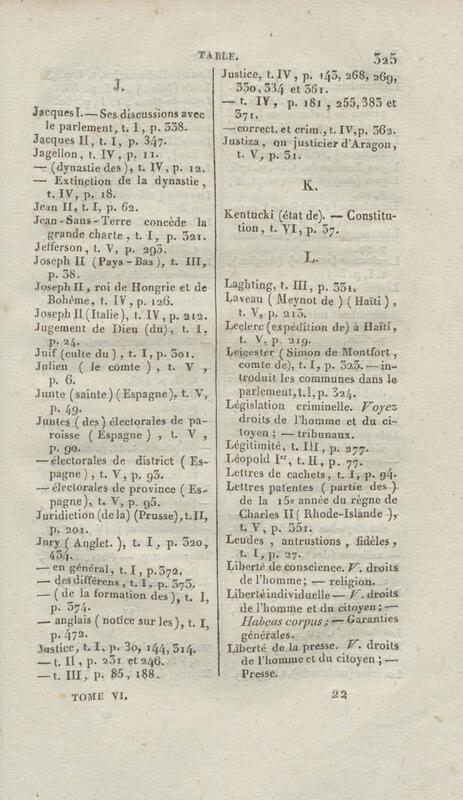 TABLE. 325
J.
Jacques I. — Ses discussions avec
le parlement, t. I, p. 338.
Jacques II, t. I, p. 347.
Jagellon, t. IV, p. 11.
— (dynastie des), t. IV, p. 12.
— Extinction de la dynastie,
t. IV, p. 18.
Jean II, t. I, p. 62.
Jean-Sans-Terre concède la
grande charte, t. I, p. 321.
Jefferson, t. V, p. 293.
Joseph II (Pays-Bas), t. III,
p. 38.
Joseph II, roi de Hongrie et de
Bohême, t. IV, p. 126.
Joseph II (Italie), t. IV, p. 212.
Jugement de Dieu (du), t. I,
p. 24.
Juif (culte du), t. I, p. 301.
Julien (le comte), t. V,
p. 6.
Junte (sainte) (Espagne), t. V,
p. 49.
Juntes (des) électorales de pa-
roisse (Espagne), t. V,
p. 90.
— électorales de district (Es-
pagne), t. V, p. 93.
— électorales de province (Es-
pagne), t. V, p. 95.
Juridiction (de la) (Prusse), t. II,
p. 201.
Jury (Anglet.), t. I, p. 320,
434.
— en général, t. I, p. 372.
— des différens, t. I, p. 373.
— (de la formation des), t. I,
p. 374.
— anglais (notice sur les), t. I,
p. 472.
Justice, t. I, p. 30, 144, 314.
— t. II, p. 231 et 246.
— t. III, p. 85, 188.
Justice, t. IV, p. 143, 268, 269,
330, 334 et 361.
— t. IV, p. 181, 255, 383 et
371.
— correct. et crim., t. IV, p. 362.
Justiza, ou justicier d'Aragon,
t. V, p. 31.
K.
Kentucki (état de). — Constitu-
tion, t. VI, p. 37.
L.
Laghting, t. III, p. 331.
Laveau (Meynot de) (Haïti),
t. V, p. 213.
Leclerc (expédition de) à Haïti,
t. V, p. 219.
Leicester (Simon de Montfort,
comte de), t. I, p. 323. — in-
troduit les communes dans le
parlement, t. I, p. 324.
Législation criminelle. Voyez
droits de l'homme et du ci-
toyen; — tribunaux.
Légitimité, t. III, p. 277.
Léopold Ier, t. II, p. 77.
Lettres de cachets, t. I, p. 94.
Lettres patentes (partie des)
de la 15e année du règne de
Charles II (Rhode-Islande),
t. V, p. 351.
Leudes, antrustions, fidèles,
t. I, p. 27.
Liberté de conscience. V. droits
de l'homme; — religion.
Liberté individuelle — V. droits
de l'homme et du citoyen; —
Habeas corpus; — Garanties
générales.
Liberté de la presse. V. droits
de l'homme et du citoyen; —
Presse.
TOME VI. 22